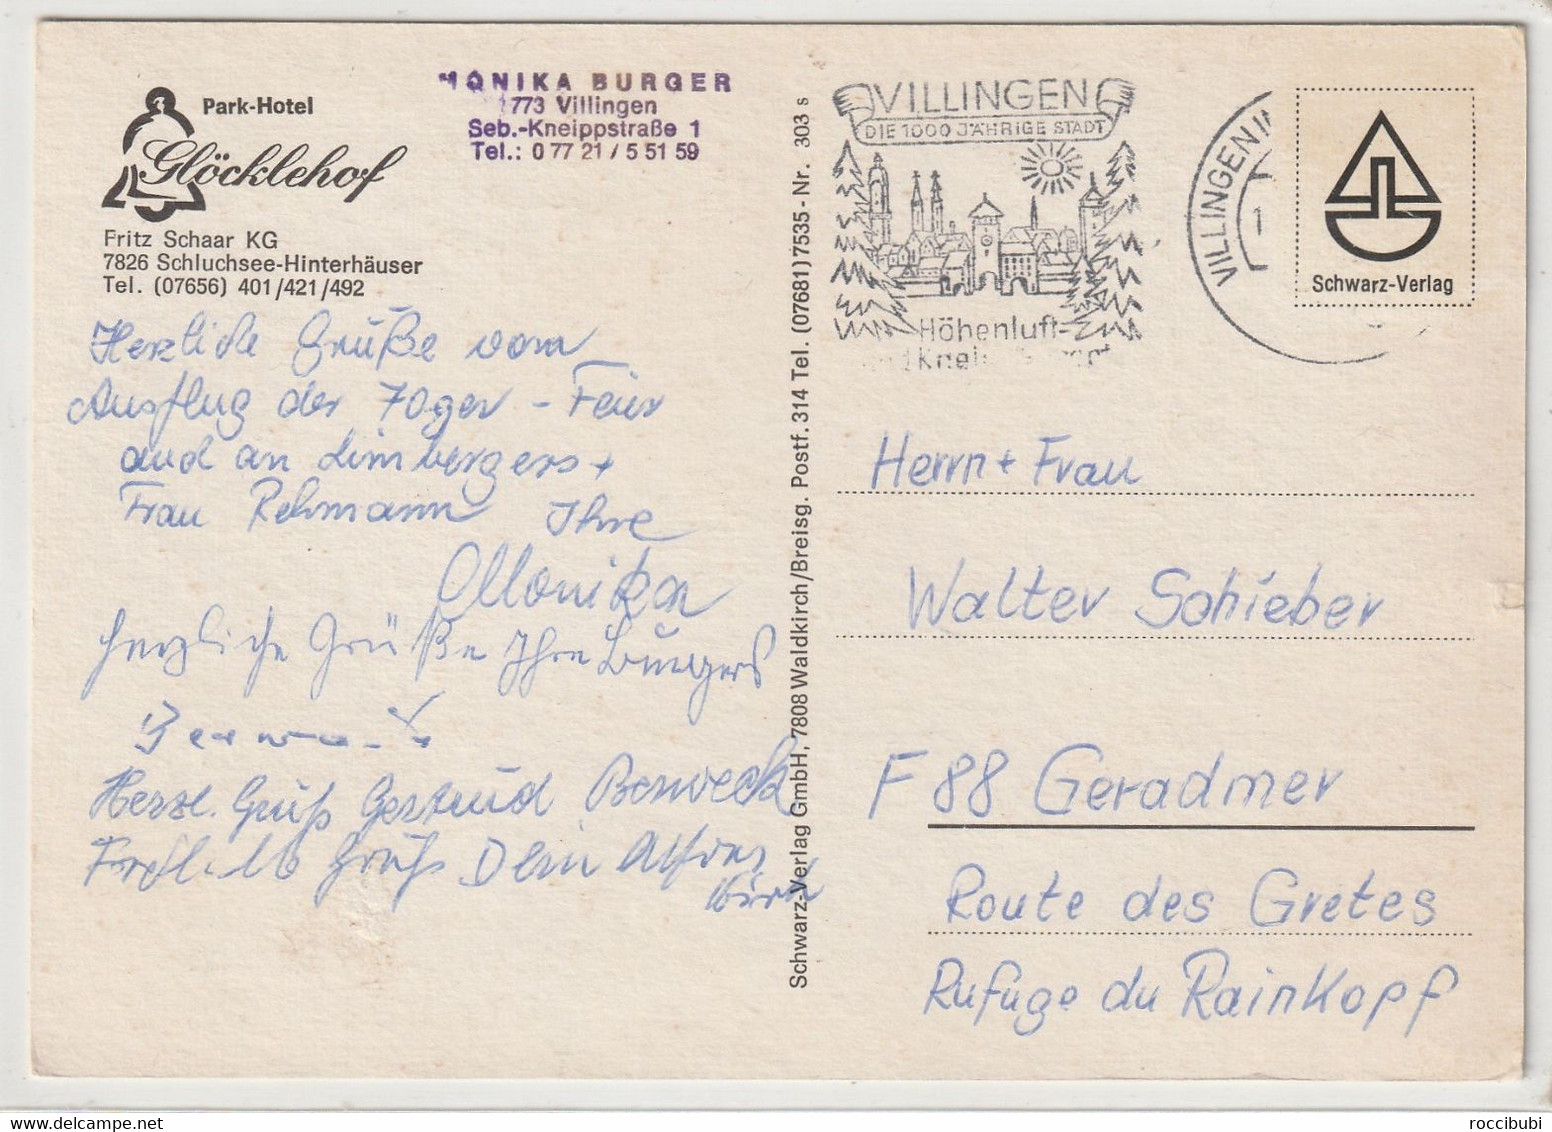 Park-Hotel
Glöcklehof
Fritz Schaar KG
7826 Schluchsee-Hinterhäuser
Tel. (07656) 401/421/492
MONIKA BURGER
773 Villingen
Seb.-Kneippstraße 1
Tel.: 0 77 21 / 5 51 59
Herzliche Grüße vom
Ausflug der 70ger - Feier
auch an Limbergers +
Frau Rehmann Ihre
Monika
herzliche Grüße Ihre Burgers
Herzl. Gruß Gertrud Berweck
Gruß Dein
Schwarz-Verlag GmbH, 7808 Waldkirch/Breisg. Postf. 314 Tel. (07681) 7535 - Nr. 303 s
VILLINGEN
DIE 1000 JÄHRIGE STADT
Höhenluft-
VILLINGEN IM
1
Schwarz-Verlag
Herrn + Frau
Walter Schieber
F 88 Geradmer
Route des Gretes
Rufuge du Rainkopf
roccibubi